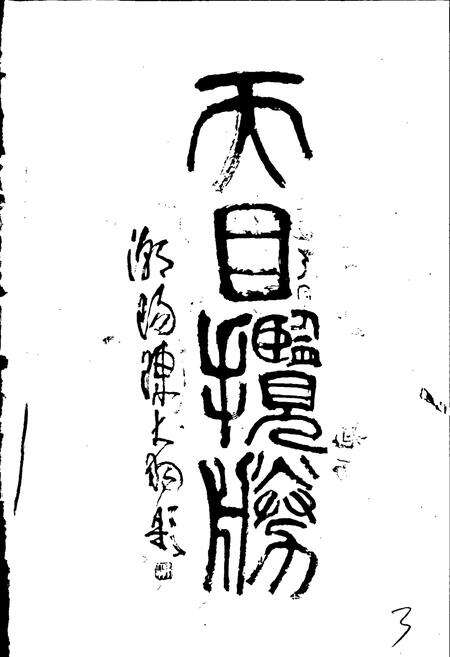 天目攬勝
潮陽陳大羽題
3